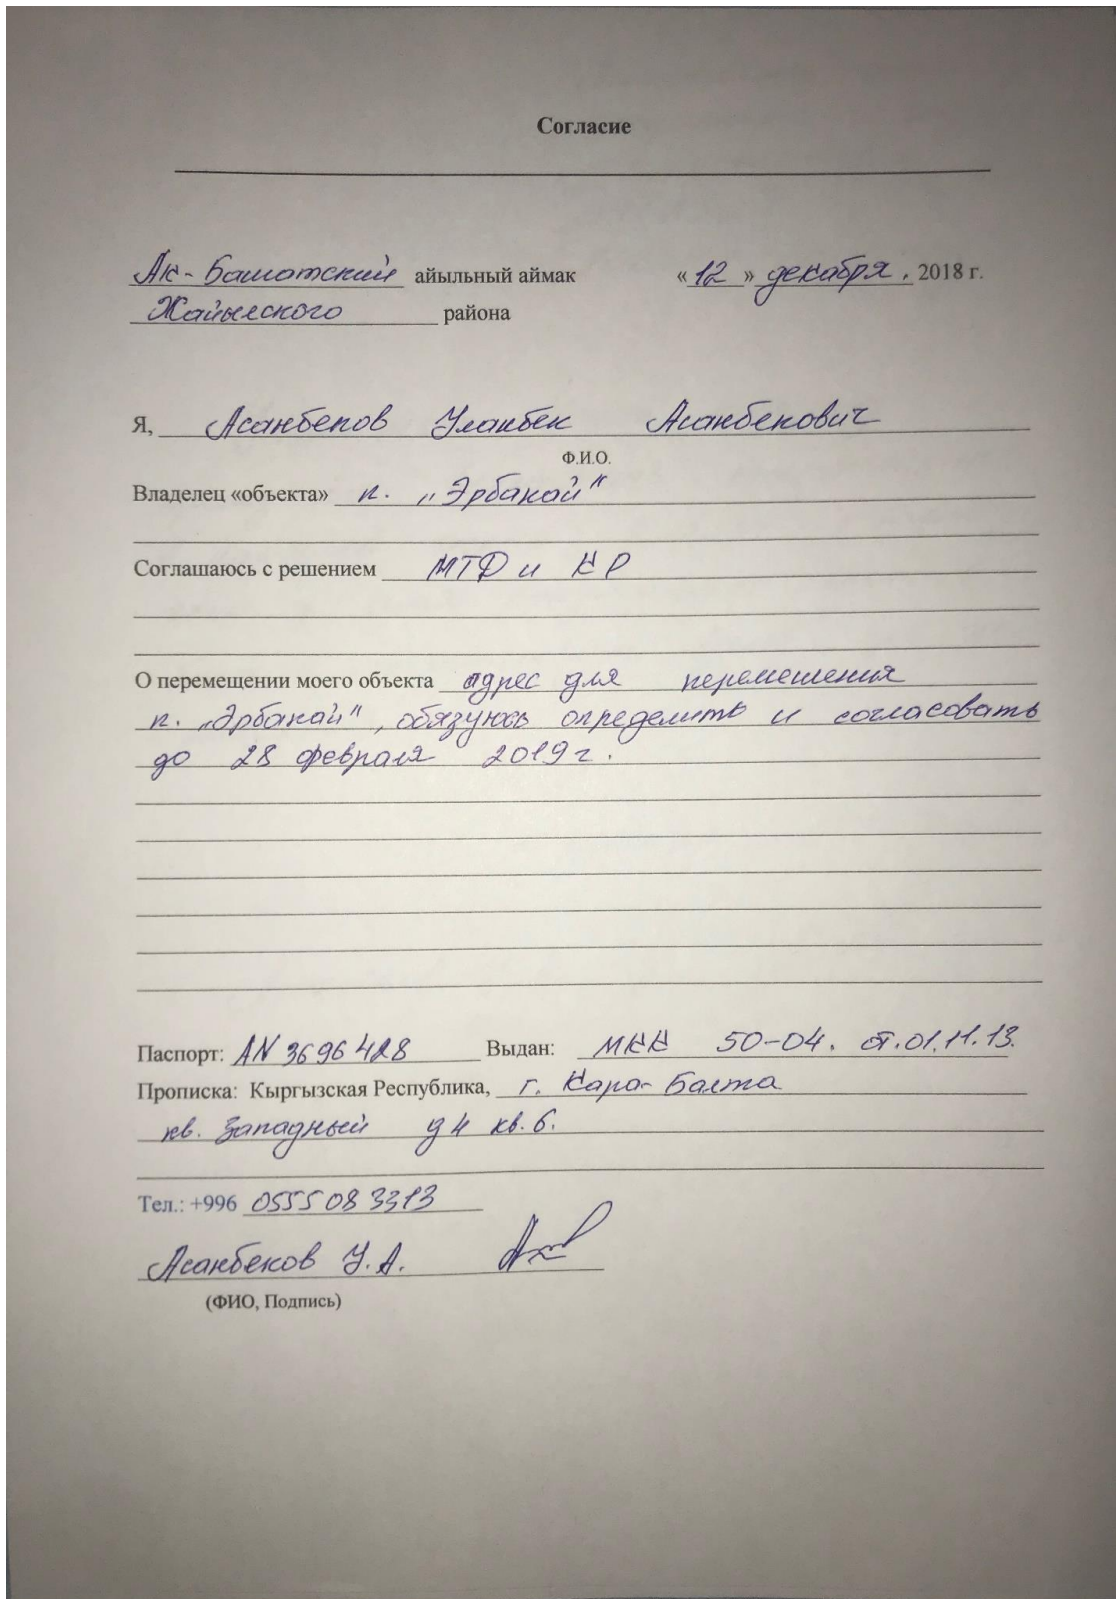 Согласие
Ак-Башатский айыльный аймак « 12 » декабря. 2018 г.
Жайылского района
Я, Асанбеков Уланбек Асанбекович
Ф.И.О.
Владелец «объекта» к. „Эрбакай"
Соглашаюсь с решением МТД и КР
О перемещении моего объекта адрес для перемешения
к. „Эрбакай", обязуюсь определить и согласовать
до 28 февраля 2019 г.
Паспорт: AN 3696428 Выдан: МКК 50-04. от.01.11.13.
Прописка: Кыргызская Республика, г. Кара-Балта
кв. Западный д 4 кв. 6.
Тел.: +996 0555 08 33 13
Асанбеков У.А.
(ФИО, Подпись)